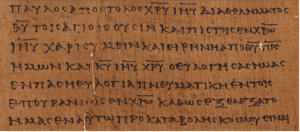 ΠΑΥΛΟϹΑΠΟϹΤΟΛΟϹΧ̅Ρ̅Υ̅Ι̅Η̅Υ̅ΔΙΑΘΕΛΗΜΑΤΟϹ
Θ̅Υ̅ΤΟΙϹΑΓΙΟΙϹΟΥϹΙΝΚΑΙΠΙϹΤΟΙϹΕΝΧ̅Ρ̅Ω̅
Ι̅Η̅Υ̅ΧΑΡΙϹΥΜΕΙΝΚΑΙΕΙΡΗΝΗΑΠΟΘ̅Υ̅Π̅Ρ̅Ϲ̅
ΗΜΩΝΚΑΙΚ̅Υ̅Ι̅Η̅Υ̅Χ̅Ρ̅Υ̅ΟΕΥΛΟΓΗϹΑϹΗΜΑϹ
ΕΝΠΑϹΗΕΥΛΟΓΙΑΠΝΕΥΜΑΤΙΚΗΕΝΤΟΙϹ
ΕΠΟΥΡΑΝΙΟΙϹΕΝΧ̅Ρ̅Ω̅ΚΑΘΩϹΕΞΕΛΕΞΑΤΟ
ΗΜΑϹΕΝΑΥΤΩΠΡΟΚΑΤΑΒΟΛΗϹΚΟϹΜΟΥΕΙΝΑΙ